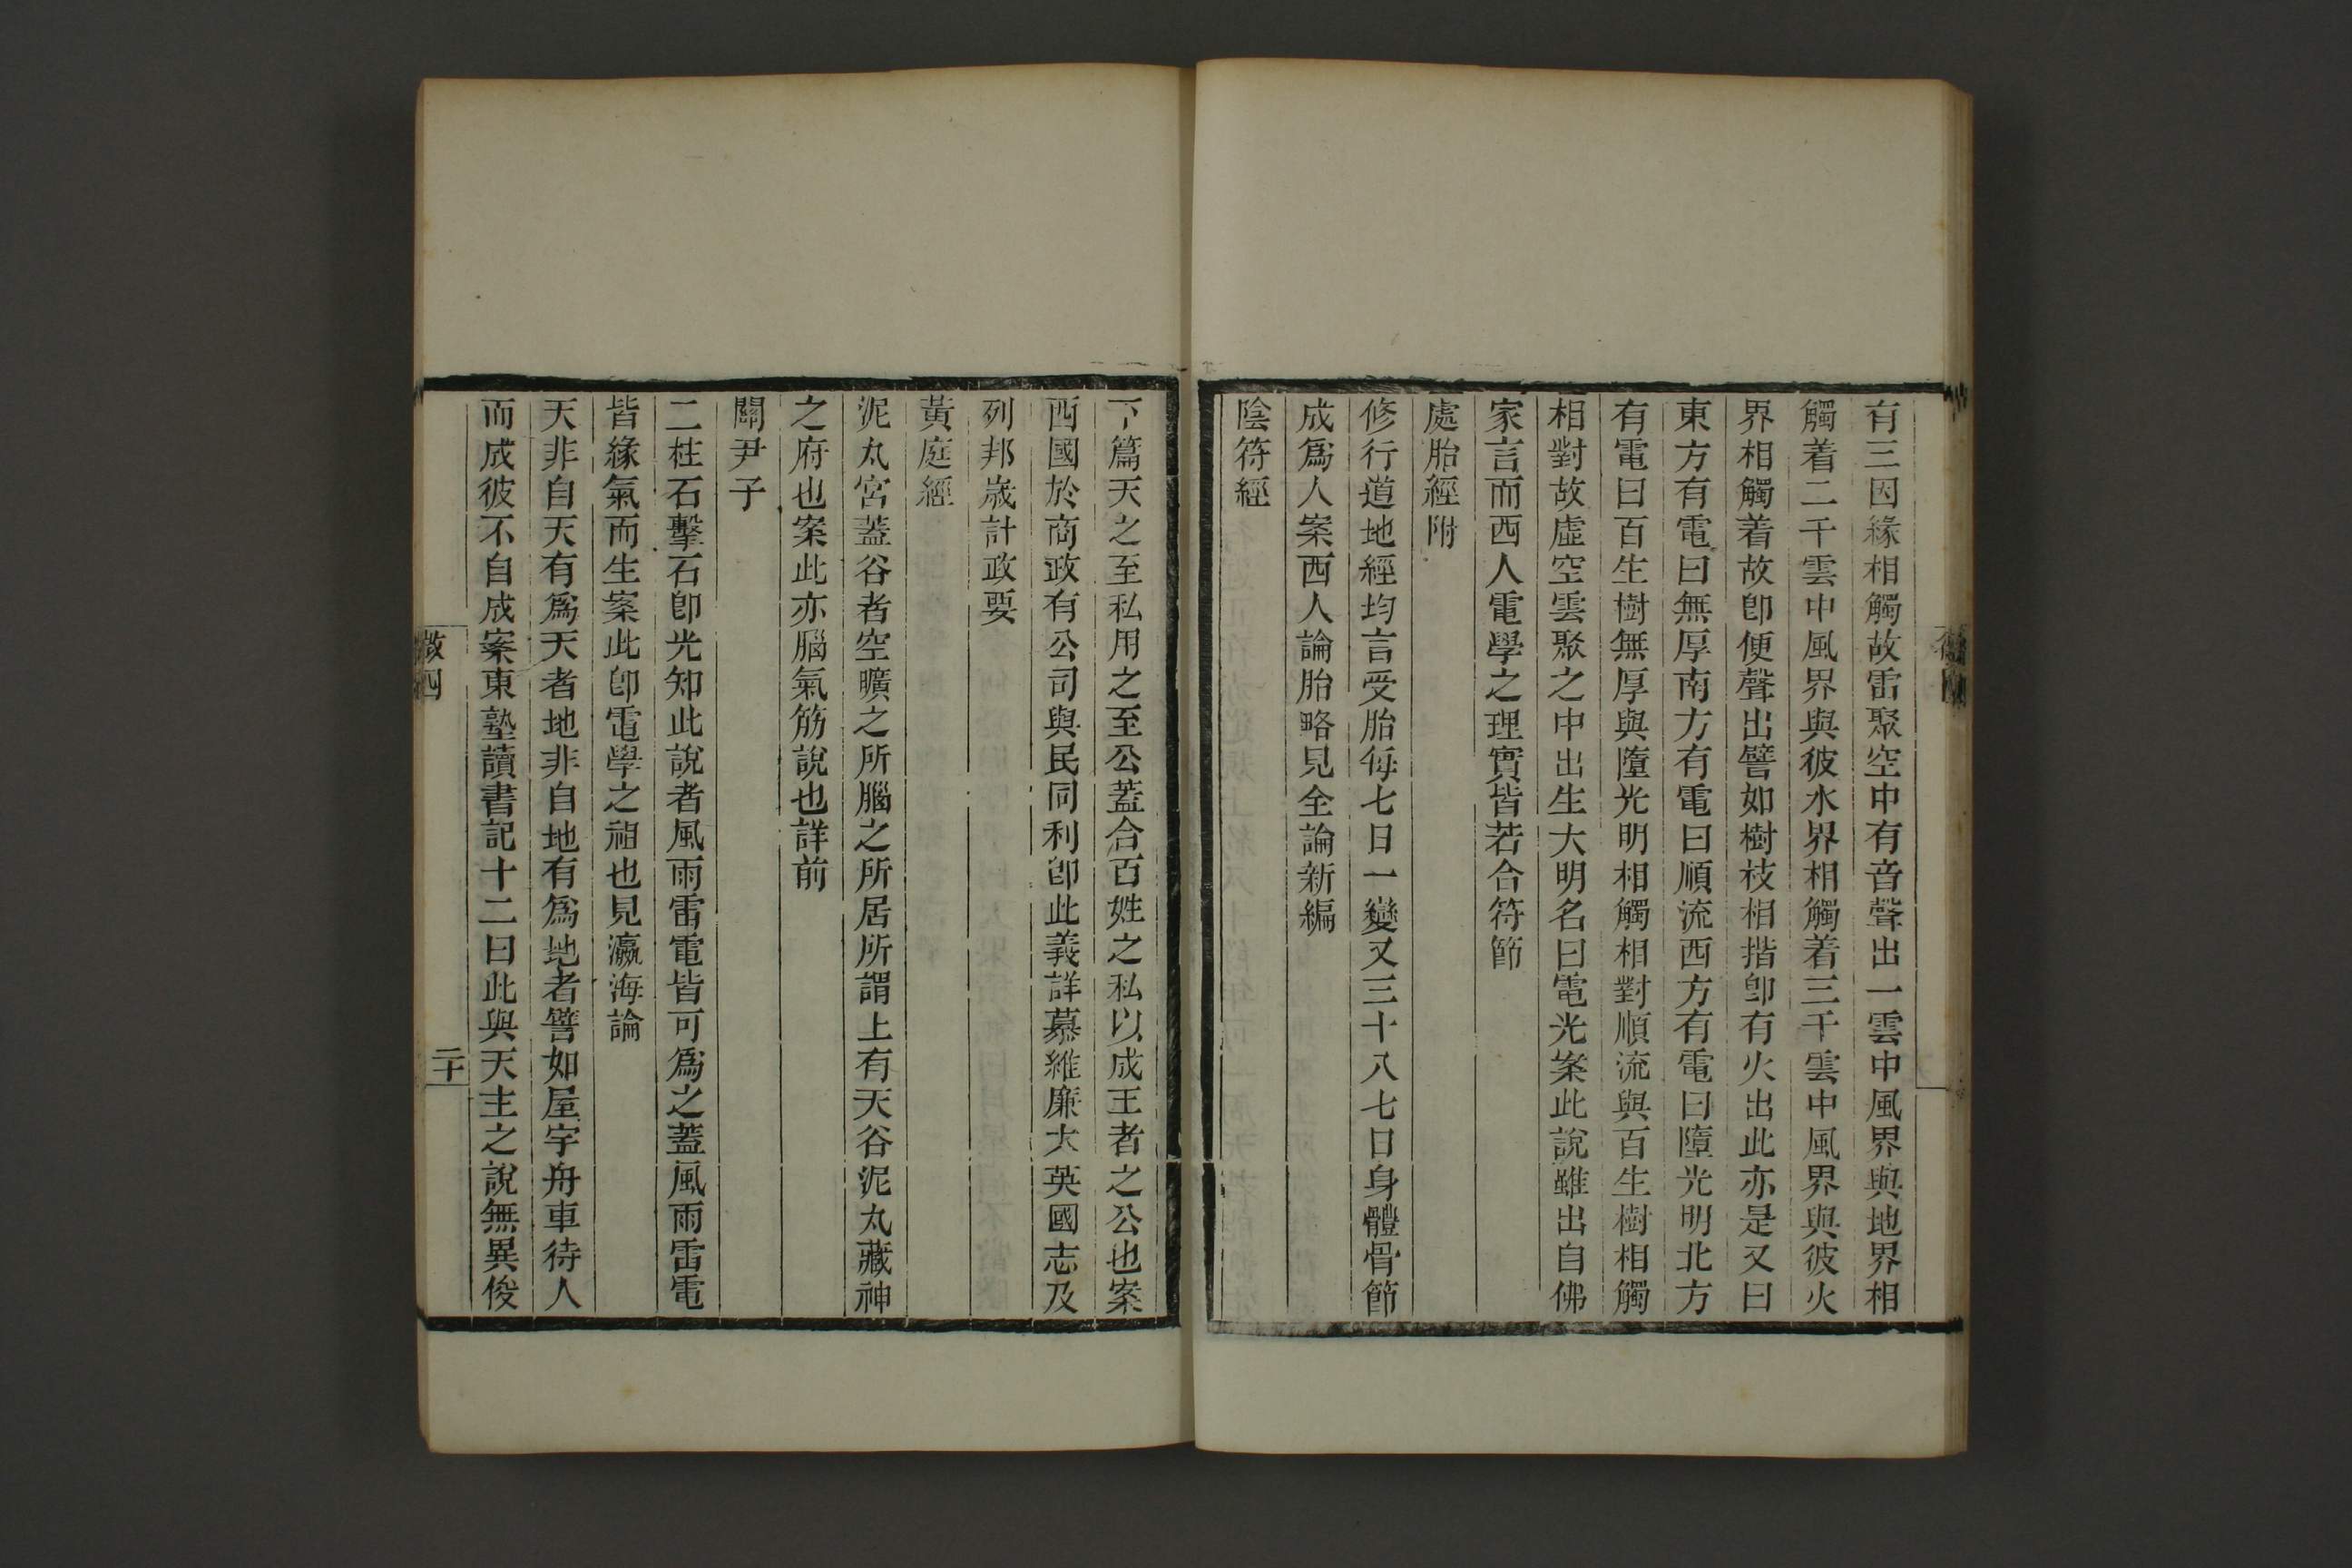 有三因緣相觸故雷聚空中有音聲出一雲中風界與地界相
觸着二千雲中風界與彼水界相觸着三千雲中風界與彼火
界相觸着故卽便聲出譬如樹枝相揩卽有火出此亦是又曰
東方有電曰無厚南方有電曰順流西方有電曰墮光明北方
有電曰百生樹無厚與墮光明相觸相對順流與百生樹相觸
相對故虛空雲聚之中出生大明名曰電光案此說雖出自佛
家言而西人電學之理實皆若合符節
處胎經附
修行道地經均言受胎每七日一變又三十八七日身體骨節
成爲人案西人論胎略見全論新編
陰符經
下篇天之至私用之至公蓋合百姓之私以成王者之公也案
西國於商政有公司與民同利卽此義詳慕維廉大英國志及
列邦歲計政要
黃庭經
泥丸宮蓋谷者空曠之所腦之所居所謂上有天谷泥丸藏神
之府也案此亦腦氣筋說也詳前
關尹子
二柱石擊石卽光知此說者風雨雷電皆可爲之蓋風雨雷電
皆緣氣而生案此卽電學之祖也見瀛海論
天非自天有爲天者地非自地有爲地者譬如屋宇舟車待人
而成彼不自成案東塾讀書記十二曰此與天主之說無異俊
二十